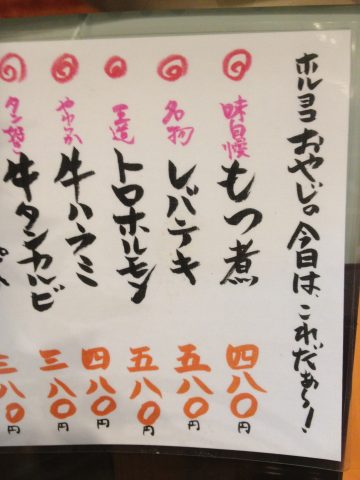 ホルヨコおやじの今日は、これだぁ〜!
味自慢
もつ煮
四八〇円
名物
レバテキ
五八〇円
王道
トロホルモン
五八〇円
やわらか
牛ハラミ
四八〇円
タン好き
牛タンカルビ
三八〇円
三八〇円